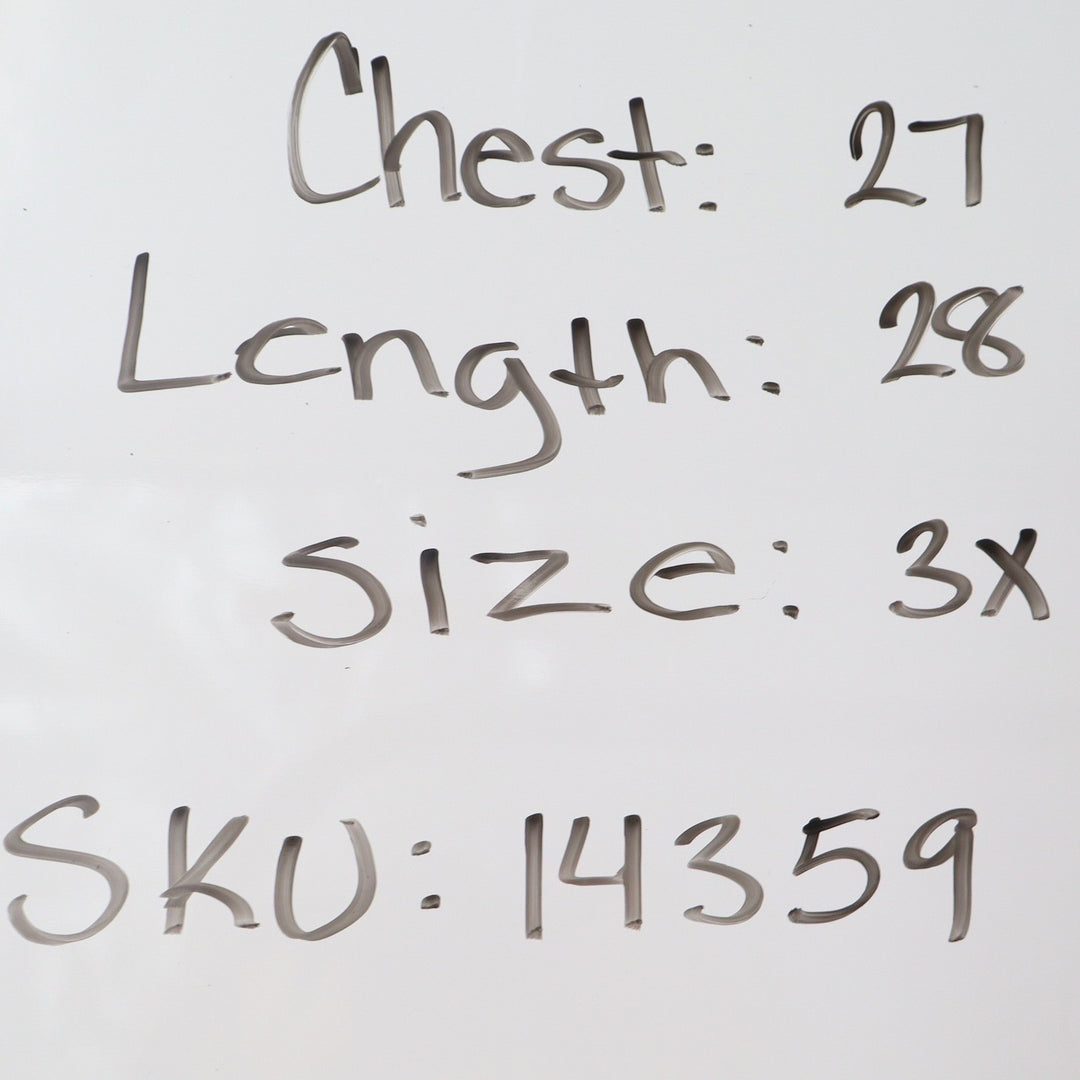 Chest: 27
Length: 28
Size: 3x
SKU: 14359